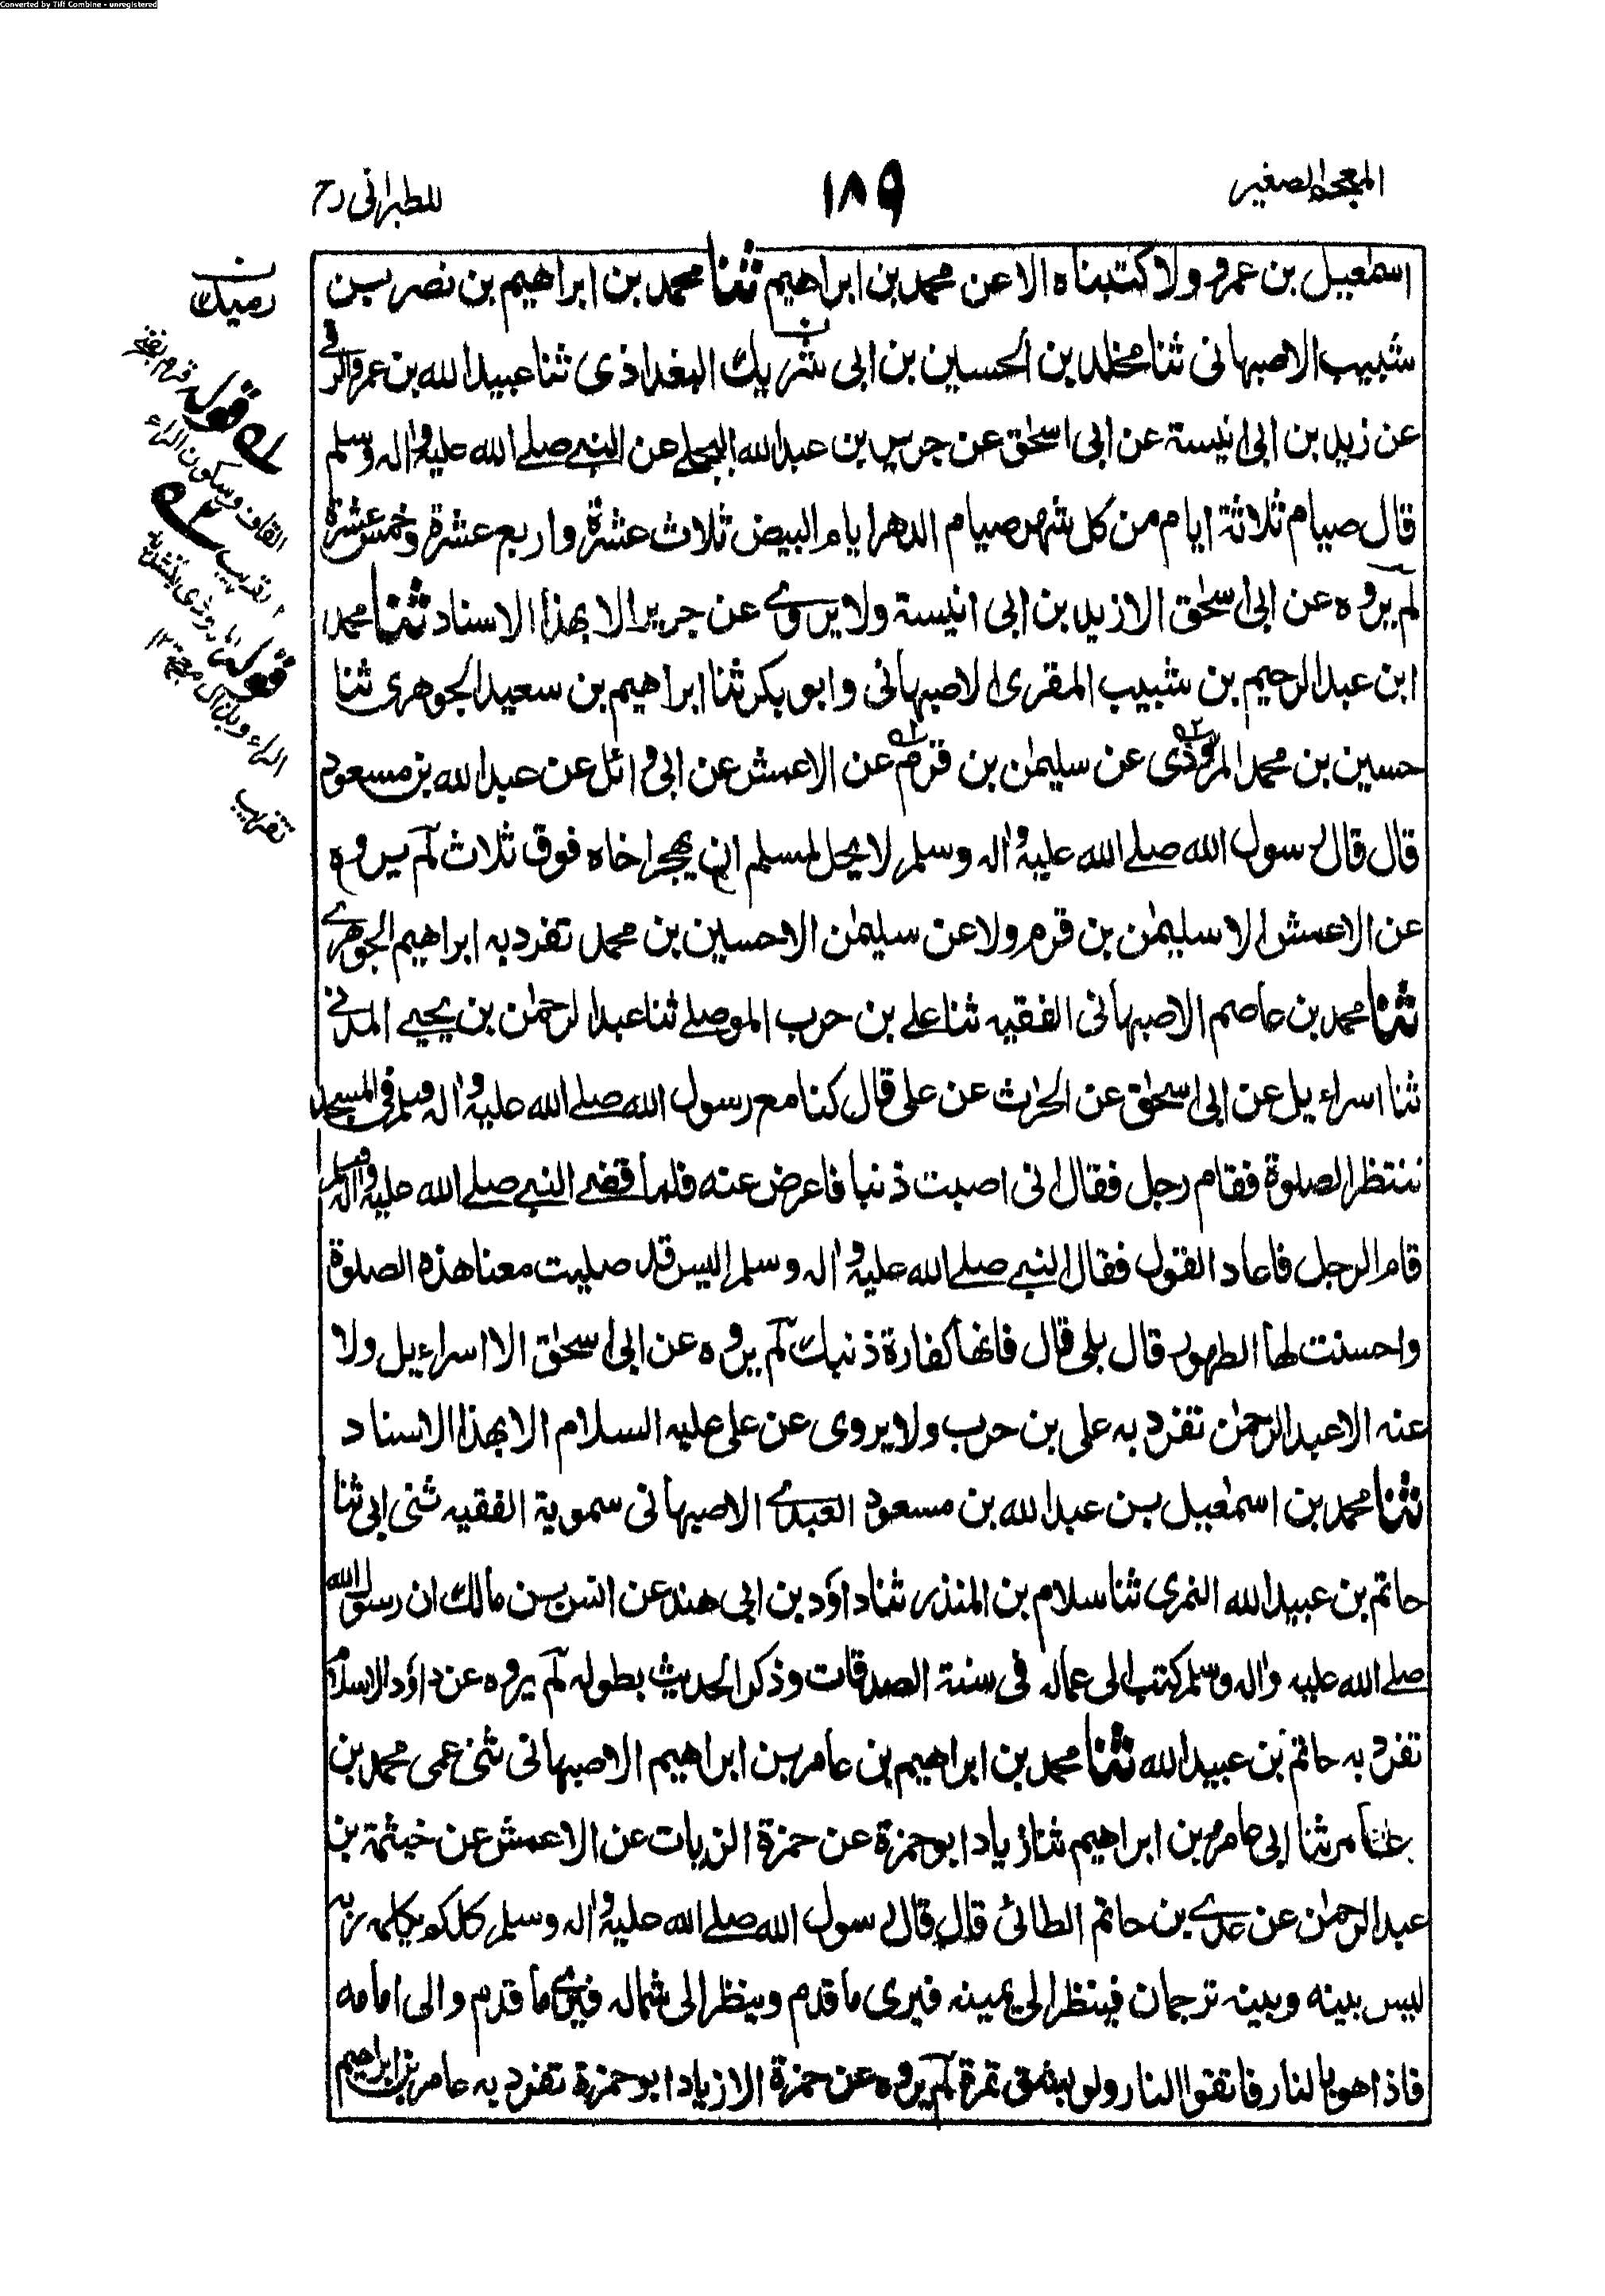 Converted by Tiff Combine - unregistered
المعجم الصغير
١٨٩
للطبرانى رح
اسمٰعيل بن عمرو ولا كتبناه الا عن محمد بن ابراهيم ثنا محمد بن ابراهيم بن نصر بن
شبيب الاصبهانى ثنا مخلد بن الحسين بن ابى شريك البغداذى ثنا عبيد الله بن عمرو الرقى
عن زيد بن ابى انيسة عن ابى اسحٰق عن جرير بن عبد الله البجلے عن النبے صلے الله عليه واله وسلم
قال صيام ثلاثة ايام من كل شهر صيام الدهر ايام البيض ثلاث عشرة واربع عشرة وخمس عشرة
لم يروه عن ابى اسحٰق الا زيد بن ابى انيسة ولا يروے عن جرير الا بهذا الاسناد ثنا محمد
ابن عبد الرحيم بن شبيب المقرى الاصبهانى وابو بكر ثنا ابراهيم بن سعيد الجوهرى ثنا
حسين بن محمد المروذى عن سليمٰن بن قرم عن الاعمش عن ابى وائل عن عبد الله بن مسعود
قال قال رسول الله صلے الله عليه واله وسلم لا يحل لمسلم ان يهجر اخاه فوق ثلاث لم يروه
عن الاعمش الا سليمٰن بن قرم ولا عن سليمٰن الا حسين بن محمد تفرد به ابراهيم الجوهرے
ثنا محمد بن عاصم الاصبهانى الفقيه ثنا علے بن حرب الموصلے ثنا عبد الرحمٰن بن يحيے المدنى
ثنا اسراءيل عن ابى اسحٰق عن الحرٰث عن على قال كنا مع رسول الله صلے الله عليه واله وسلم فى المسجد
ننتظر الصلوة فقام رجل فقال انى اصبت ذنبا فاعرض عنه فلما قضے النبے صلے الله عليه واله وسلم
قام الرجل فاعاد القول فقال النبے صلے الله عليه واله وسلم اليس قد صليت معنا هذه الصلوة
واحسنت لها الطهور قال بلى قال فانها كفارة ذنبك لم يروه عن ابى اسحٰق الا اسراءيل ولا
عنه الا عبد الرحمٰن تفرد به على بن حرب ولا يروى عن على عليه السلام الا بهذا الاسناد
ثنا محمد بن اسمٰعيل بن عبد الله بن مسعود العبدے الاصبهانى سموية الفقيه ثنى ابى ثنا
حاتم بن عبيد الله النمرى ثنا سلام بن المنذر ثنا داؤد بن ابى هند عن انس بن مالك ان رسول الله
صلے الله عليه واله وسلم كتب الى عماله فى سنة الصدقات وذكر الحديث بطوله لم يروه عن داؤد الا سلام
تفرد به حاتم بن عبيد الله ثنا محمد بن ابراهيم بن عامر بن ابراهيم الاصبهانى ثنى عمى محمد بن
عامر ثنا ابى عامر بن ابراهيم ثنا زياد ابو حمزة عن حمزة الزيات عن الاعمش عن خيثمة بن
عبد الرحمٰن عن عدے بن حاتم الطائى قال قال رسول الله صلے الله عليه واله وسلم كلكم يكلمه ربه
ليس بينه وبينه ترجمان فينظر الى يمينه فيرى ما قدم وينظر الى شماله فيرى ما قدم والى امامه
فاذا هو بالنار فاتقوا النار ولو بشق تمرة لم يروه عن حمزة الا زياد ابو حمزة تفرد به عامر بن ابراهيم
ن
له قوله قرم بفتح
القاف وسكون الراء
١٢ تقريب
قوله
الراء
تقريب